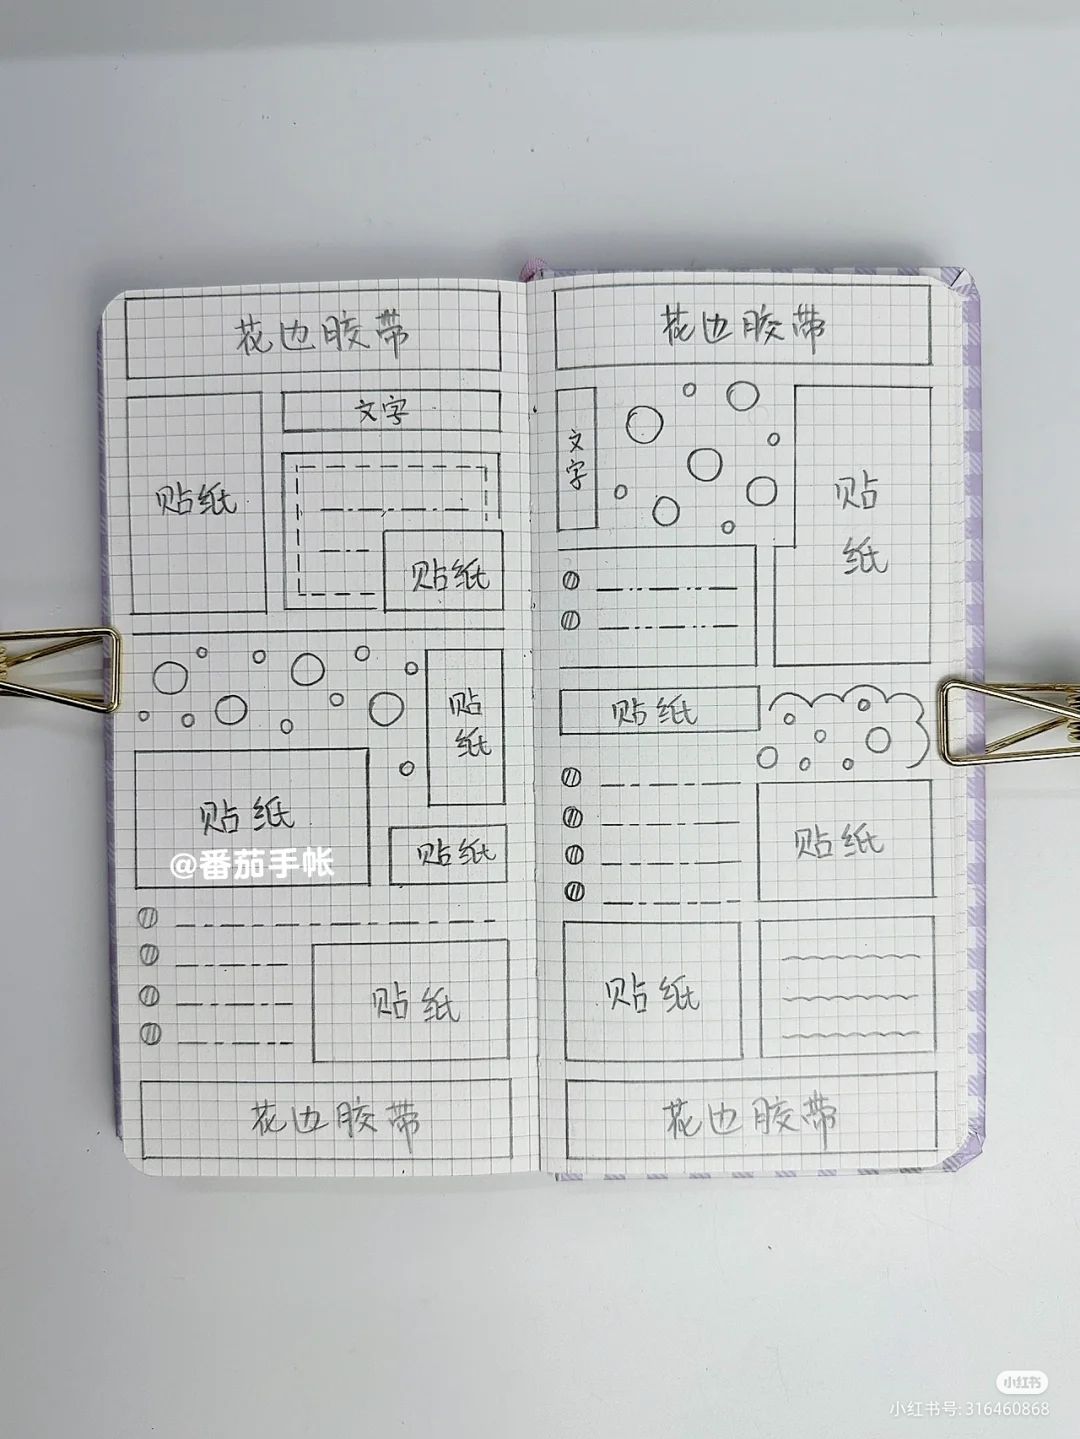 花边胶带
文字
贴纸
贴纸
贴
纸
贴纸
@番茄手帐
贴纸
贴纸
花边胶带
花边胶带
文
字
贴
纸
贴纸
贴纸
贴纸
花边胶带
小红书
小红书号:316460868